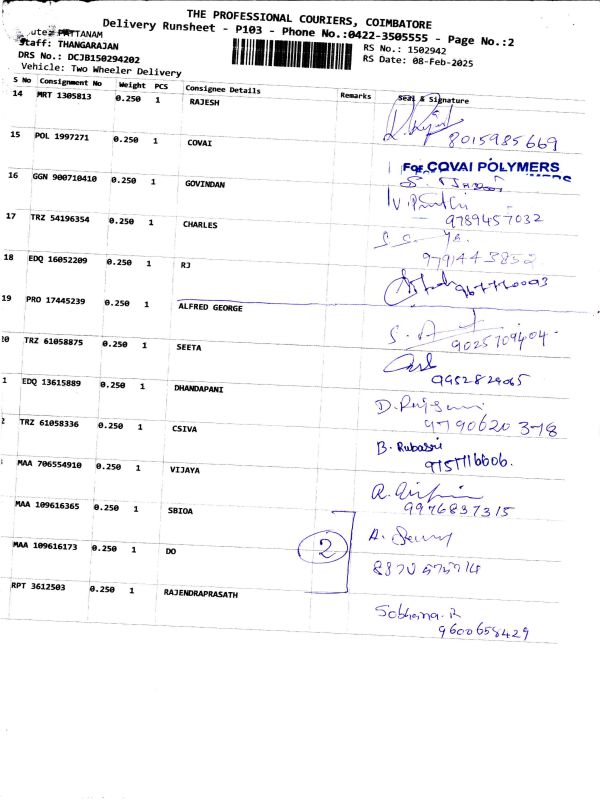 THE PROFESSIONAL COURIERS, COIMBATORE
Delivery Runsheet - P103 - Phone No.:0422-3505555 - Page No.:2
ute: PATTANAM
Staff: THANGARAJAN RS No.: 1502942
DRS No.: DCJB150294202 RS Date: 08-Feb-2025
Vehicle: Two Wheeler Delivery
S No Consignment No Weight PCS Consignee Details Remarks Seal & Signature
14 MRT 1305813 0.250 1 RAJESH
8015985669
15 POL 1997271 0.250 1 COVAI
For COVAI POLYMERS
16 GGN 900710410 0.250 1 GOVINDAN
9789457032
17 TRZ 54196354 0.250 1 CHARLES
9791443852
18 EDQ 16052209 0.250 1 RJ
19 PRO 17445239 0.250 1 ALFRED GEORGE
9025709404
20 TRZ 61058875 0.250 1 SEETA
9952829065
1 EDQ 13615889 0.250 1 DHANDAPANI
9790620378
2 TRZ 61058336 0.250 1 CSIVA
B. Rubasri
9751716606.
MAA 706554910 0.250 1 VIJAYA
9976837315
MAA 109616365 0.250 1 SBIOA
MAA 109616173 0.250 1 DO 2
RPT 3612503 0.250 1 RAJENDRAPRASATH
Sobhana.R
9600658429